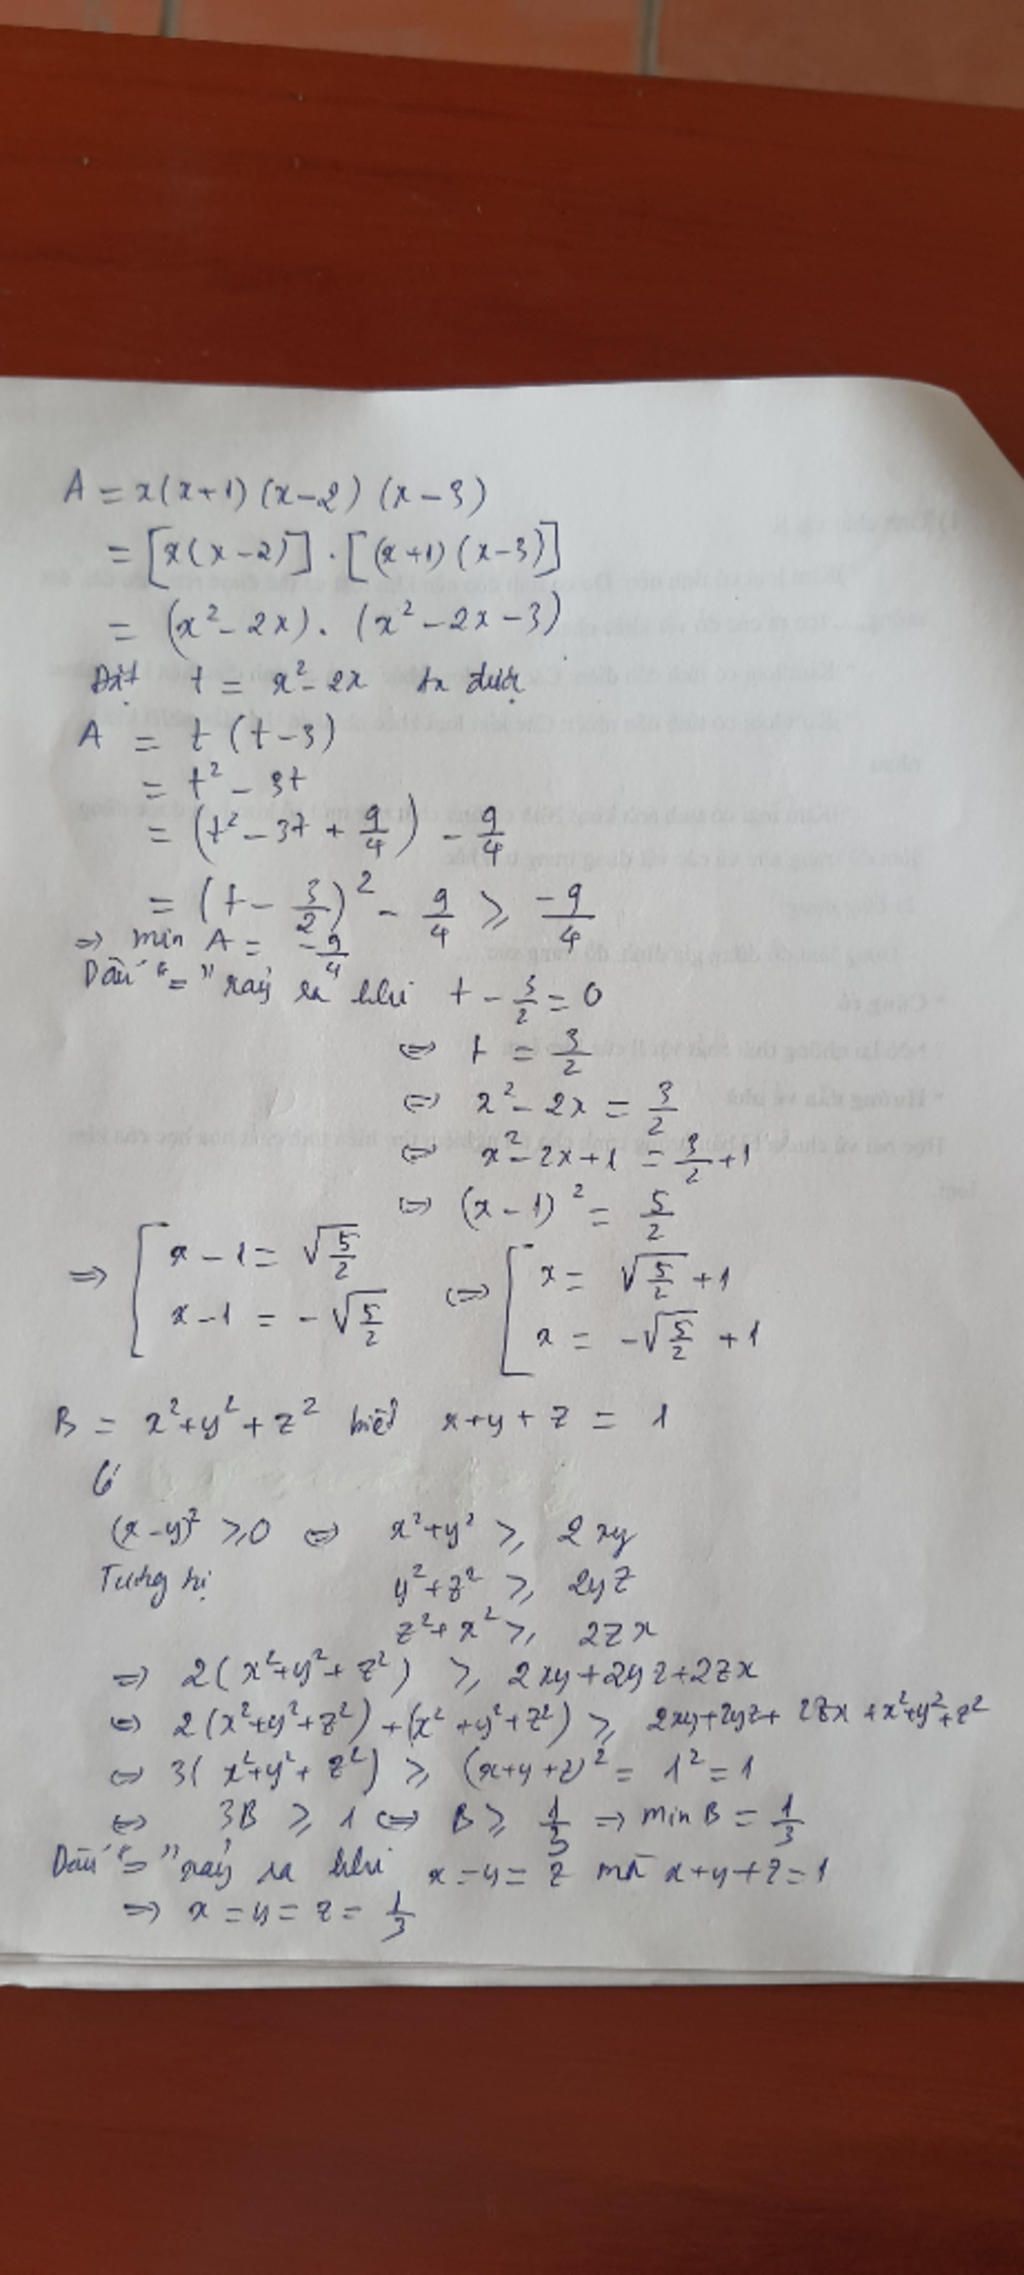 A = x(x+1)(x-2)(x-3)
= [x(x-2)] · [(x+1)(x-3)]
= (x² - 2x) . (x² - 2x - 3)
Đặt t = x² - 2x ta được
A = t(t-3)
= t² - 3t
= (t² - 3t + 9/4) - 9/4
= (t - 3/2)² - 9/4 ⩾ -9/4
=> min A = -9/4
Dấu "=" xảy ra khi t - 3/2 = 0
<=> t = 3/2
<=> x² - 2x = 3/2
<=> x² - 2x + 1 = 3/2 + 1
<=> (x-1)² = 5/2
=> [ x - 1 = √(5/2) <=> [ x = √(5/2) + 1
x - 1 = -√(5/2) x = -√(5/2) + 1
B = x² + y² + z² biết x + y + z = 1
Có
(x-y)² ⩾ 0 <=> x² + y² ⩾ 2xy
Tương tự y² + z² ⩾ 2yz
z² + x² ⩾ 2zx
=> 2(x² + y² + z²) ⩾ 2xy + 2yz + 2zx
<=> 2(x² + y² + z²) + (x² + y² + z²) ⩾ 2xy + 2yz + 2zx + x² + y² + z²
<=> 3(x² + y² + z²) ⩾ (x + y + z)² = 1² = 1
<=> 3B ⩾ 1 <=> B ⩾ 1/3 => min B = 1/3
Dấu "=" xảy ra khi x = y = z mà x + y + z = 1
=> x = y = z = 1/3